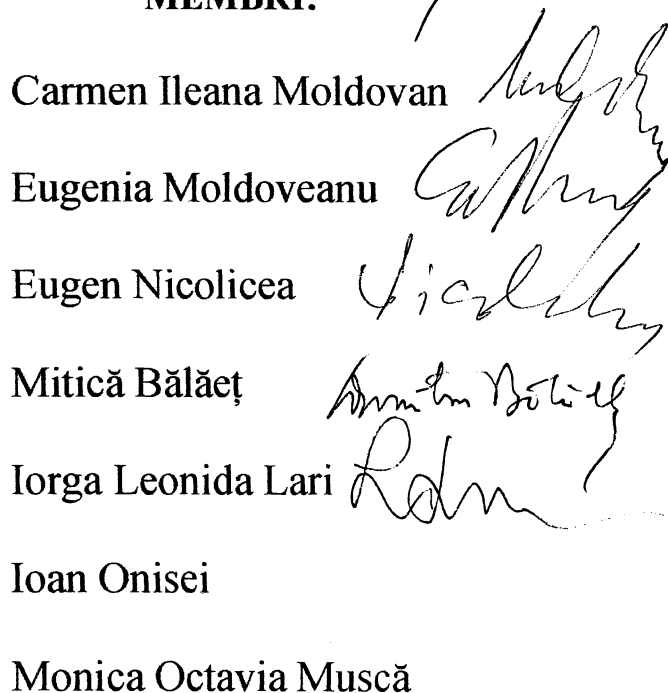 MEMBRI:
Carmen Ileana Moldovan
Eugenia Moldoveanu
Eugen Nicolicea
Mitică Bălăeț
Iorga Leonida Lari
Ioan Onisei
Monica Octavia Muscă